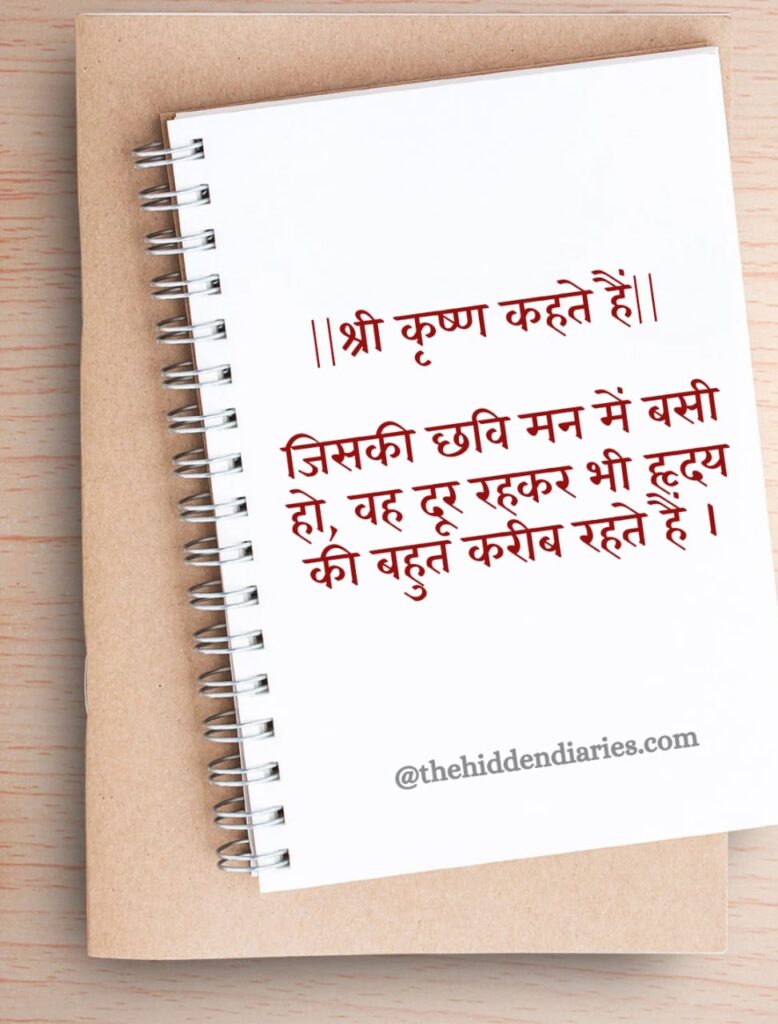 ||श्री कृष्ण कहते हैं||
जिसकी छवि मन में बसी
हो, वह दूर रहकर भी हृदय
की बहुत करीब रहते हैं ।
@thehiddendiaries.com